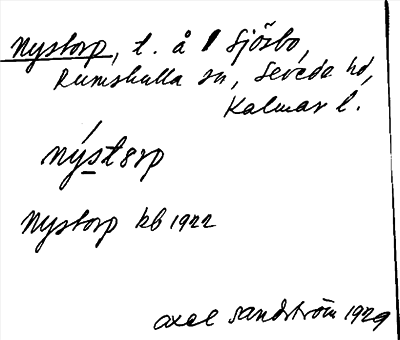 Nystorp, t. å 1 Sjösbo,
Rumskulla sn, Sevede hd,
Kalmar l.
nýstorp
Nystorp kb 1922
Axel Sandström 1929